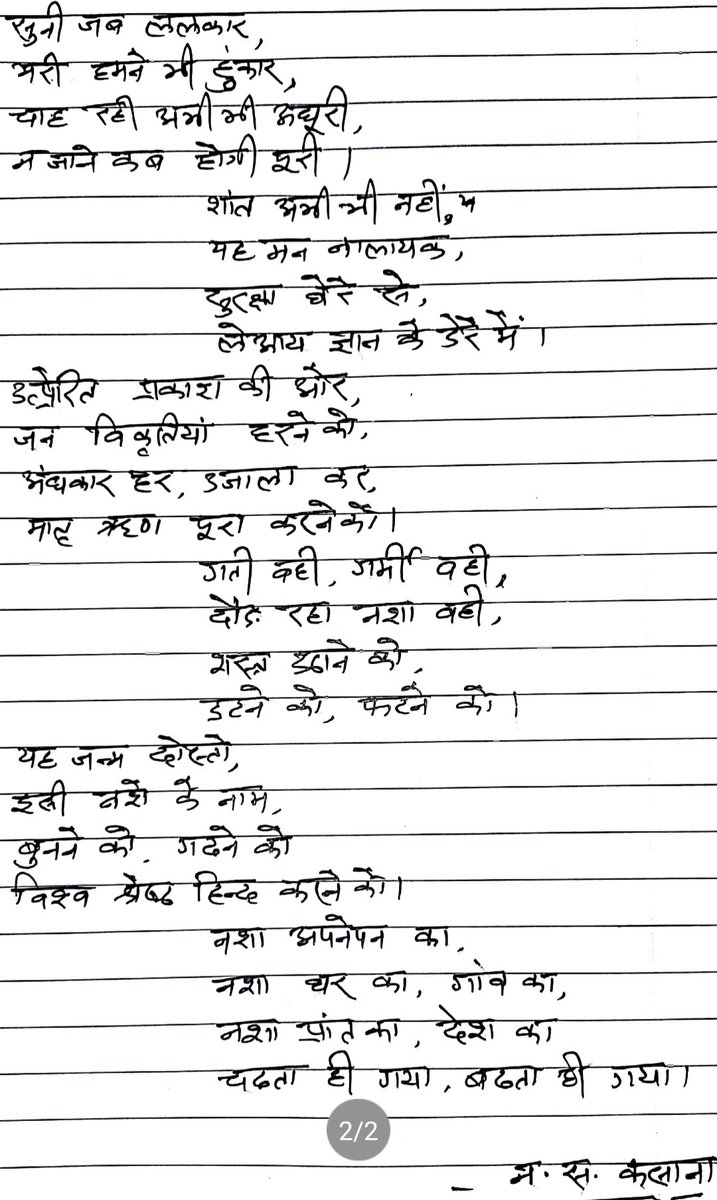 सुनी जब ललकार,
भरी हमने भी हुंकार,
चाह रही अभी भी अधूरी,
न जाने कब होगी पूरी।
शांत अभी भी नहीं,
यह मन नालायक,
सुरक्षा घेरे से,
ले आय ज्ञान के डेरे में।
उत्प्रेरित प्रकाश की ओर,
जन विकृतियां हरने को,
अंधकार हर, उजाला कर,
मातृ ऋण पूरा करने को।
गती वही, गर्मी वही,
दौड़ रहा नशा वही,
शस्त्र उठाने को,
डटने को, फटने को।
यह जन्म दोस्तो,
इसी नशे के नाम,
बुनने को, गढने को
विश्व श्रेष्ठ हिन्द करने को।
नशा अपनेपन का,
नशा घर का, गांव का,
नशा प्रांत का, देश का
चढता ही गया, बढता ही गया।
2/2
– म. स. कसाना